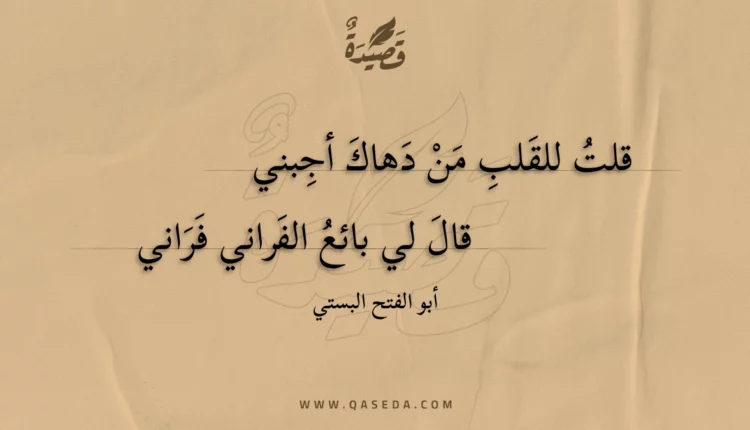 قَصِيْدَةٌ
قلتُ للقَلبِ مَنْ دَهاكَ أجِبني
قالَ لي بائعُ الفَراني فَرَاني
أبو الفتح البستي
WWW.QASEDA.COM